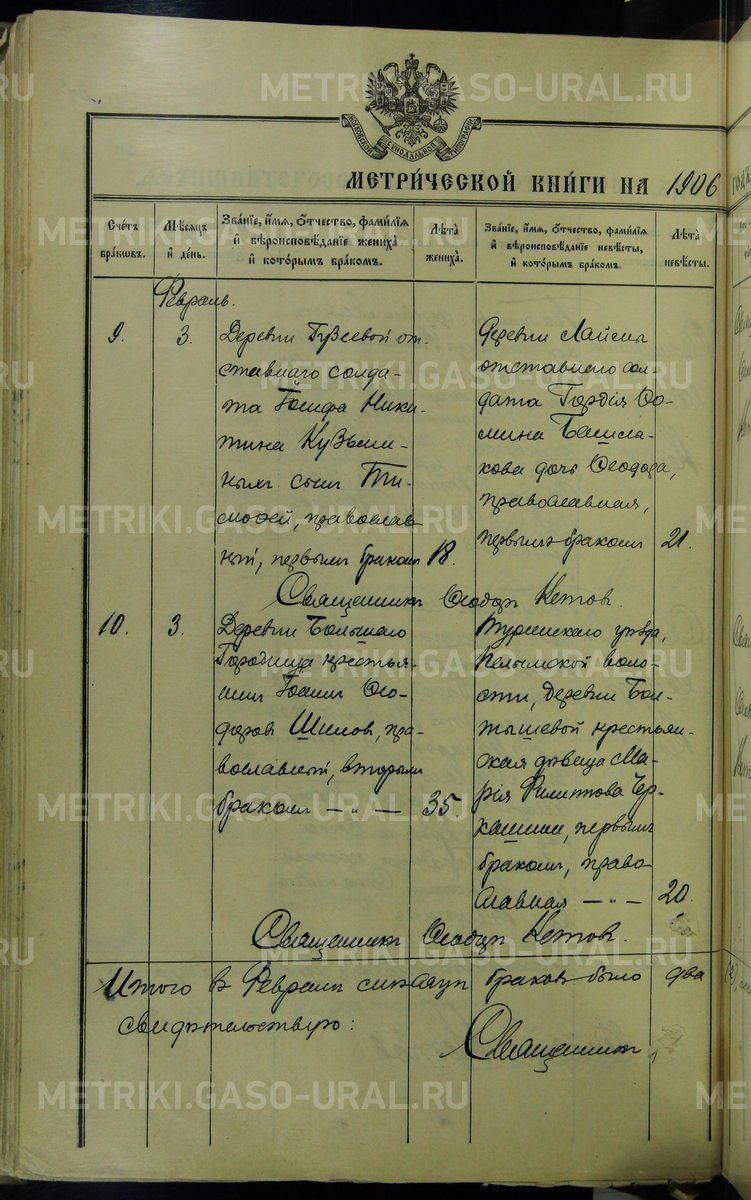 МОСКОВСКОЙ СѴНОДАЛЬНОЙ ТИПОГРАФІИ
МЕТРИ́ЧЕСКОЙ КНИ́ГИ НА 1906
Сче́тъ бра́ковъ.
Мѣ́сяцъ и́ де́нь.
Зва́нїе, и́мя, о́тчество, фами́лїя и́ вѣроисповѣ́данїе жениха̀ и́ кото́рымъ бра́комъ.
Лѣ́та жениха̀.
Зва́нїе, и́мя, о́тчество, фами́лїя и́ вѣроисповѣ́данїе невѣ́сты, и́ кото́рымъ бра́комъ.
Лѣ́та невѣ́сты.
Февраль.
9.
3.
Деревни Гузеевой от-
ставнаго солда-
та Іосифа Ники-
тина Кузьми-
ныхъ сынъ Ти-
моѳей, православ
ный, первымъ бракомъ
18.
Деревни
отставного сол-
дата Гордія Ѳо-
мина Башла-
кова дочь Ѳеодора,
православная,
первымъ бракомъ
21.
Священникъ Ѳеодоръ Кетовъ.
10.
3.
Деревни Большаго
Городища крестья-
нинъ Іоаннъ Ѳео-
доровъ Шиловъ, пра-
вославный, вторымъ
бракомъ — „ —
35.
Туринскаго уѣзда,
Пелымской воло-
сти, деревни Бол-
тышевой крестьян-
ская дѣвица Ма-
рія Филиппова Чер-
кашина, первымъ
бракомъ, право
славная — „ —
20.
Священникъ Ѳеодоръ Кетовъ.
Итого въ Февралѣ мѣсяцѣ браковъ было два
свидѣтельствую:
Священникъ
METRIKI.GASO-URAL.RU